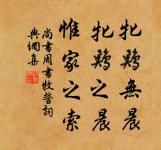 牝鷄無晨
牝鷄之晨
惟家之索
尚書周書牧誓詞
典綱集